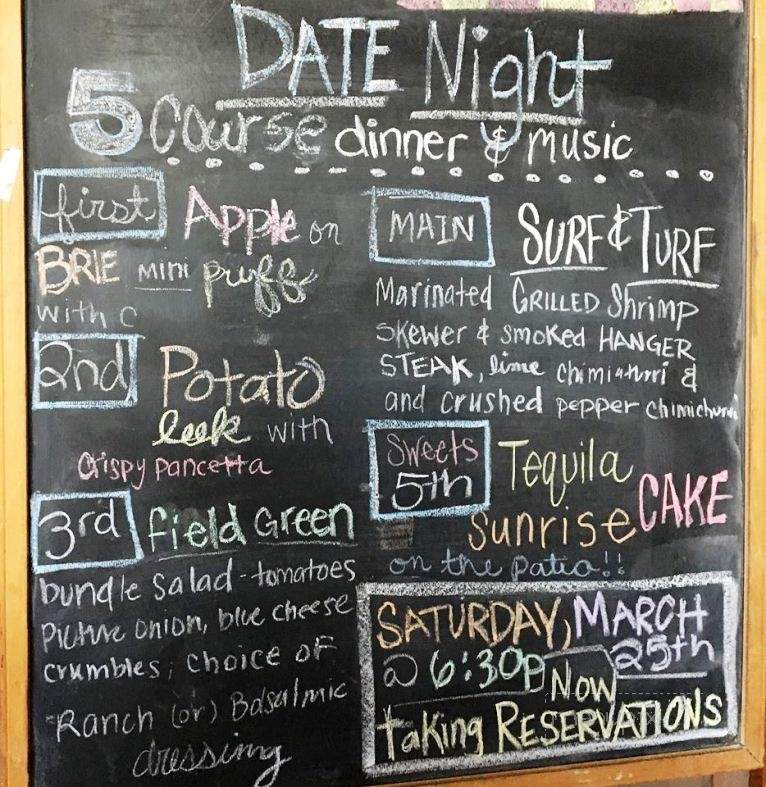 DATE Night
5 course dinner & music
first Apple on
BRIE mini puff
with c
2nd Potato
leek with
crispy pancetta
3rd field Green
bundle salad - tomatoes
Picture onion, blue cheese
crumbles, choice of
Ranch (or) Balsalmic
dressing
MAIN SURF & TURF
Marinated GRILLED Shrimp
skewer & smoked HANGER
STEAK, lime chimichurri &
and crushed pepper chimichurri
Sweets
5th Tequila
Sunrise CAKE
on the patio!!
SATURDAY, MARCH
25th
@ 6:30p NOW
taking RESERVATIONS